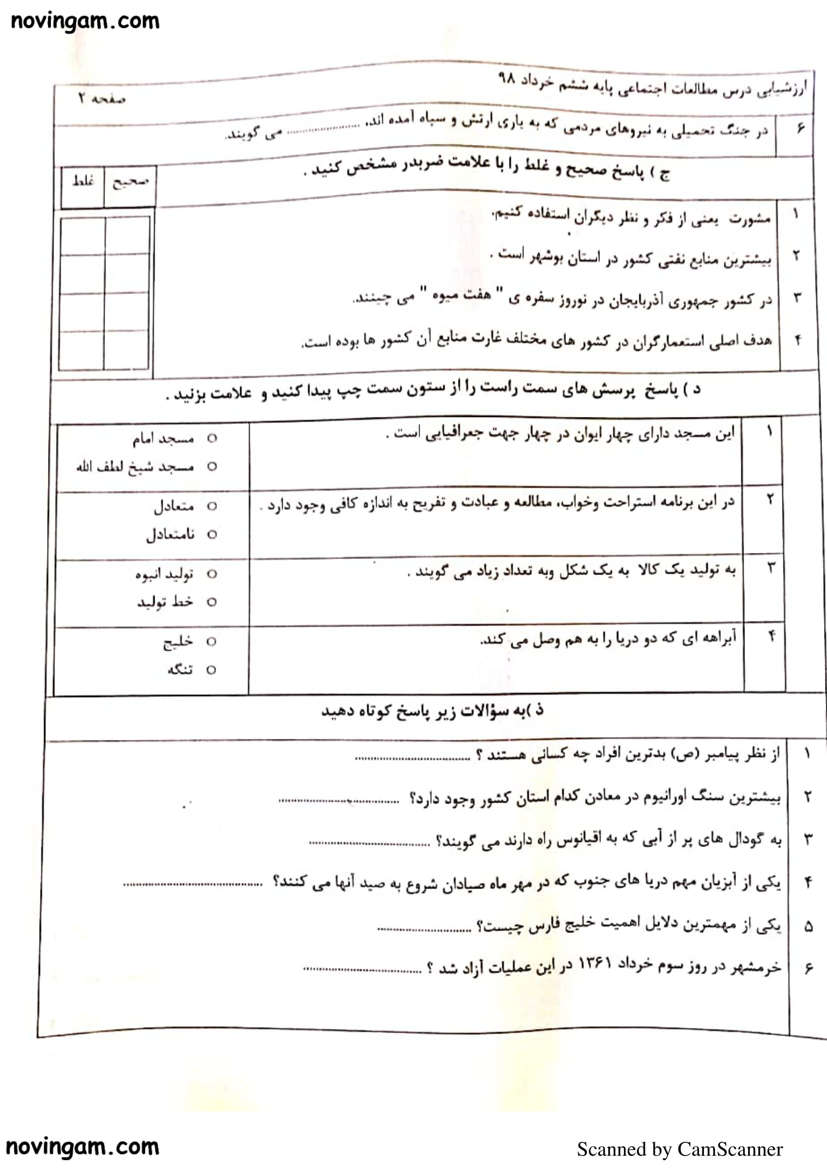 novingam.com
ارزشیابی درس مطالعات اجتماعی پایه ششم خرداد ۹۸
صفحه ۲
۶ در جنگ تحمیلی به نیروهای مردمی که به یاری ارتش و سپاه آمده اند، .................... می گویند.
ج ) پاسخ صحیح و غلط را با علامت ضربدر مشخص کنید .
صحیح غلط
۱ مشورت یعنی از فکر و نظر دیگران استفاده کنیم.
۲ بیشترین منابع نفتی کشور در استان بوشهر است .
۳ در کشور جمهوری آذربایجان در نوروز سفره ی " هفت میوه " می چینند.
۴ هدف اصلی استعمارگران در کشور های مختلف غارت منابع آن کشور ها بوده است.
د ) پاسخ پرسش های سمت راست را از ستون سمت چپ پیدا کنید و علامت بزنید .
۱ این مسجد دارای چهار ایوان در چهار جهت جعرافیایی است .
○ مسجد امام
○ مسجد شیخ لطف الله
۲ در این برنامه استراحت وخواب، مطالعه و عبادت و تفریح به اندازه کافی وجود دارد .
○ متعادل
○ نامتعادل
۳ به تولید یک کالا به یک شکل وبه تعداد زیاد می گویند .
○ تولید انبوه
○ خط تولید
۴ آبراهه ای که دو دریا را به هم وصل می کند.
○ خلیج
○ تنگه
ذ )به سؤالات زیر پاسخ کوتاه دهید
۱ از نظر پیامبر (ص) بدترین افراد چه کسانی هستند ؟ .................................
۲ بیشترین سنگ اورانیوم در معادن کدام استان کشور وجود دارد؟ .................................
۳ به گودال های پر از آبی که به اقیانوس راه دارند می گویند؟ .................................
۴ یکی از آبزیان مهم دریا های جنوب که در مهر ماه صیادان شروع به صید آنها می کنند؟ .......................................
۵ یکی از مهمترین دلایل اهمیت خلیج فارس چیست؟ ..........................
۶ خرمشهر در روز سوم خرداد ۱۳۶۱ در این عملیات آزاد شد ؟ .................................
novingam.com
Scanned by CamScanner